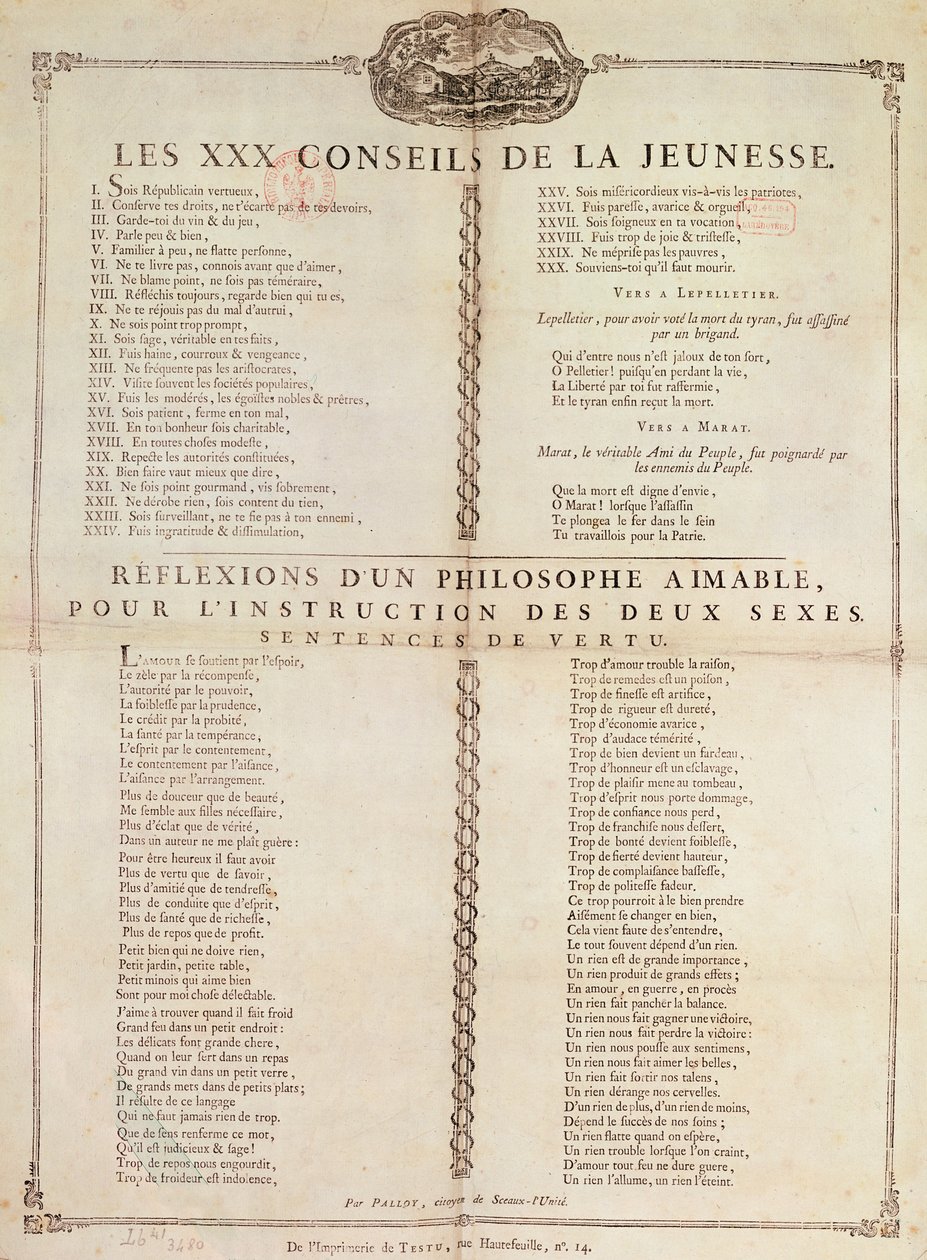 LES XXX CONSEILS DE LA JEUNESSE.
I. Sois Républicain vertueux,
II. Conſerve tes droits, ne t'écarte pas de tes devoirs,
III. Garde-toi du vin & du jeu,
IV. Parle peu & bien,
V. Familier à peu, ne flatte perſonne,
VI. Ne te livre pas, connois avant que d'aimer,
VII. Ne blame point, ne ſois pas téméraire,
VIII. Réfléchis toujours, regarde bien qui tu es,
IX. Ne te réjouis pas du mal d'autrui,
X. Ne sois point trop prompt,
XI. Sois ſage, véritable en tes faits,
XII. Fuis haine, courroux & vengeance,
XIII. Ne fréquente pas les ariſtocrates,
XIV. Viſite ſouvent les ſociétés populaires,
XV. Fuis les modérés, les égoïſtes nobles & prêtres,
XVI. Sois patient, ferme en ton mal,
XVII. En ton bonheur ſois charitable,
XVIII. En toutes choſes modeſte,
XIX. Repecte les autorités conſtituées,
XX. Bien faire vaut mieux que dire,
XXI. Ne ſois point gourmand, vis ſobrement,
XXII. Ne dérobe rien, ſois content du tien,
XXIII. Sois ſurveillant, ne te fie pas à ton ennemi,
XXIV. Fuis ingratitude & diſſimulation,
XXV. Sois miſéricordieux vis-à-vis les patriotes,
XXVI. Fuis pareſſe, avarice & orgueil,
XXVII. Sois ſoigneux en ta vocation,
XXVIII. Fuis trop de joie & triſteſſe,
XXIX. Ne mépriſe pas les pauvres,
XXX. Souviens-toi qu'il faut mourir.
VERS A LEPELLETIER.
Lepelletier, pour avoir voté la mort du tyran, fut aſſaſſiné
par un brigand.
Qui d'entre nous n'eſt jaloux de ton ſort,
O Pelletier! puiſqu'en perdant la vie,
La Liberté par toi fut raffermie,
Et le tyran enfin reçut la mort.
VERS A MARAT.
Marat, le véritable Ami du Peuple, fut poignardé par
les ennemis du Peuple.
Que la mort eſt digne d'envie,
O Marat! lorſque l'aſſaſſin
Te plongea le fer dans le ſein
Tu travaillois pour la Patrie.
RÉFLEXIONS D'UN PHILOSOPHE AIMABLE,
POUR L'INSTRUCTION DES DEUX SEXES.
SENTENCES DE VERTU.
L'AMOUR ſe ſoutient par l'eſpoir,
Le zèle par la récompenſe,
L'autorité par le pouvoir,
La foibleſſe par la prudence,
Le crédit par la probité,
La ſanté par la tempérance,
L'eſprit par le contentement,
Le contentement par l'aiſance,
L'aiſance par l'arrangement.
Plus de douceur que de beauté,
Me ſemble aux filles néceſſaire,
Plus d'éclat que de vérité,
Dans un auteur ne me plaît guère:
Pour être heureux il faut avoir
Plus de vertu que de ſavoir,
Plus d'amitié que de tendreſſe,
Plus de conduite que d'eſprit,
Plus de ſanté que de richeſſe,
Plus de repos que de profit.
Petit bien qui ne doive rien,
Petit jardin, petite table,
Petit minois qui aime bien
Sont pour moi choſe délectable.
J'aime à trouver quand il fait froid
Grand feu dans un petit endroit:
Les délicats font grande chere,
Quand on leur ſert dans un repas
Du grand vin dans un petit verre,
De grands mets dans de petits plats;
Il réſulte de ce langage
Qui ne faut jamais rien de trop.
Que de ſens renferme ce mot,
Qu'il eſt judicieux & ſage!
Trop de repos nous engourdit,
Trop de froideur eſt indolence,
Trop d'amour trouble la raiſon,
Trop de remedes eſt un poiſon,
Trop de fineſſe eſt artifice,
Trop de rigueur eſt dureté,
Trop d'économie avarice,
Trop d'audace témérité,
Trop de bien devient un fardeau,
Trop d'honneur eſt un eſclavage,
Trop de plaiſir mene au tombeau,
Trop d'eſprit nous porte dommage,
Trop de confiance nous perd,
Trop de franchiſe nous deſſert,
Trop de bonté devient foibleſſe,
Trop de fierté devient hauteur,
Trop de complaiſance baſſeſſe,
Trop de politeſſe fadeur.
Ce trop pourroit à le bien prendre
Aiſément ſe changer en bien,
Cela vient faute de s'entendre,
Le tout ſouvent dépend d'un rien.
Un rien eſt de grande importance,
Un rien produit de grands effets;
En amour, en guerre, en procès
Un rien fait pancher la balance.
Un rien nous fait gagner une victoire,
Un rien nous fait perdre la victoire:
Un rien nous pouſſe aux sentimens,
Un rien nous fait aimer les belles,
Un rien fait ſortir nos talens,
Un rien dérange nos cervelles.
D'un rien de plus, d'un rien de moins,
Dépend le ſuccès de nos ſoins;
Un rien flatte quand on eſpère,
Un rien trouble lorſque l'on craint,
D'amour tout feu ne dure guere,
Un rien l'allume, un rien l'éteint.
Par PALLOY, citoyen de Sceaux-l'Unité.
Lb 41
3480
De l'Imprimerie de TESTU, rue Hautefeuille, n°. 14.